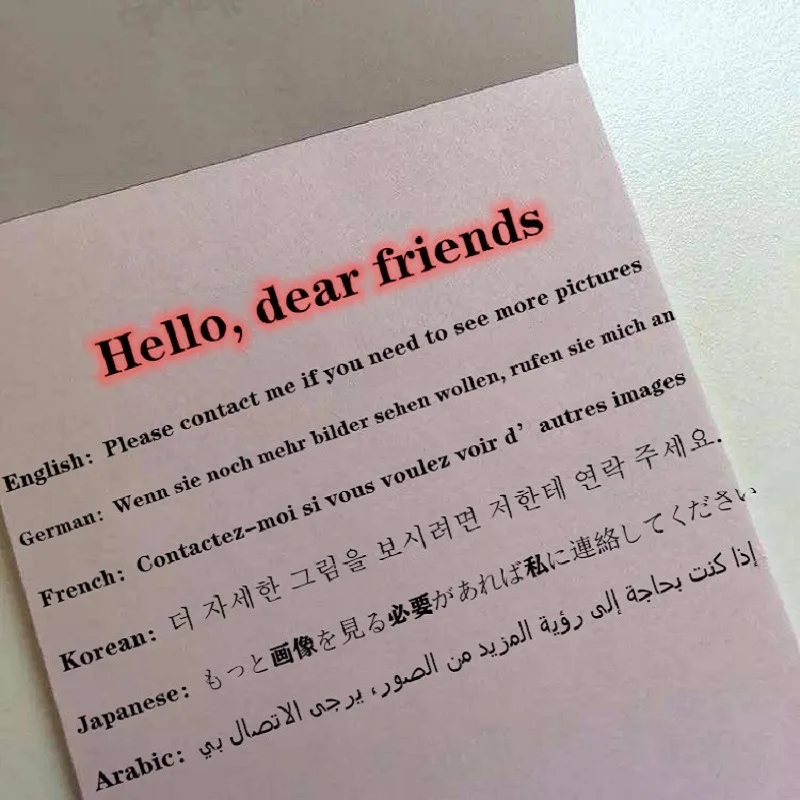 Hello, dear friends
English: Please contact me if you need to see more pictures
German: Wenn sie noch mehr bilder sehen wollen, rufen sie mich an
French: Contactez-moi si vous voulez voir d’ autres images
Korean: 더 자세한 그림을 보시려면 저한테 연락 주세요.
Japanese: もっと画像を見る必要があれば私に連絡してください
Arabic: إذا كنت بحاجة إلى رؤية المزيد من الصور، يرجى الاتصال بي